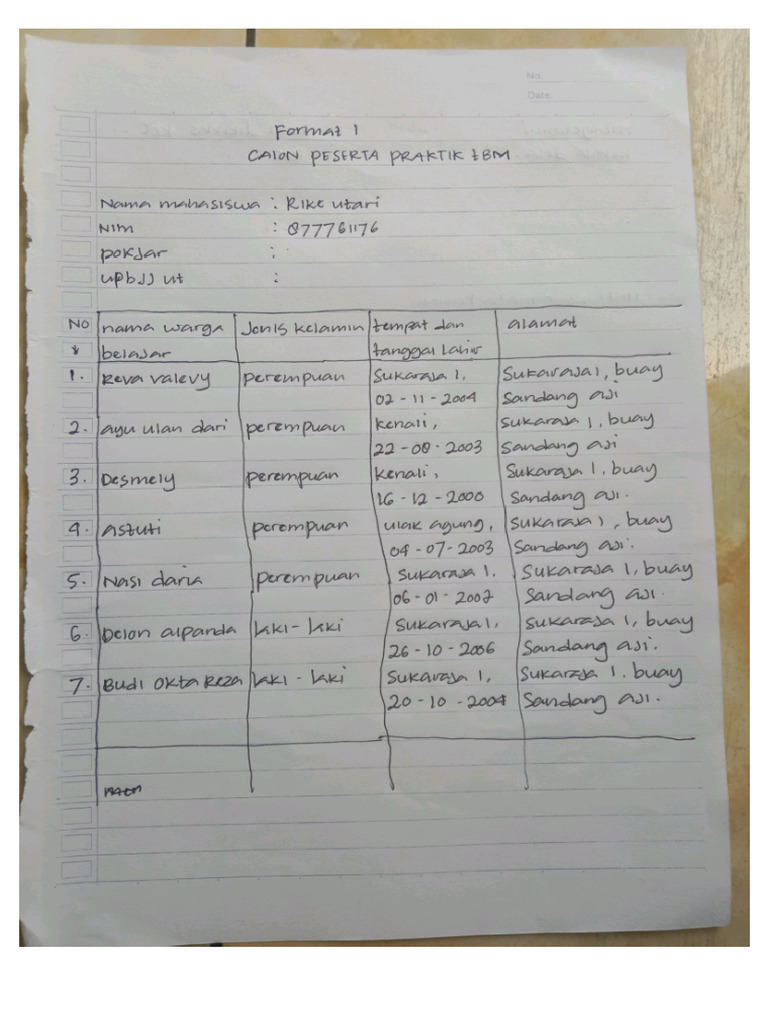 No.
Date.
Format 1
CALON PESERTA PRAKTIK tBM
Nama mahasiswa : Rike utari
NIM : 877761176
pokjar :
upbJJ ut :
NO nama warga belajar Jenis kelamin tempat dan tanggal lahir alamat
1. Reva valevy perempuan Sukaraja 1, Sukaraja 1, buay
02 - 11 - 2004 Sandang aji
2. ayu ulan dari perempuan kenali, sukaraja 1, buay
22 - 08 - 2003 Sandang aji
3. Desmely perempuan kenali, Sukaraja 1, buay
16 - 12 - 2000 Sandang aji.
4. Astuti perempuan ulak agung, sukaraja 1, buay
04 - 07 - 2003 Sandang aji.
5. Nasi daria perempuan Sukaraja 1, Sukaraja 1, buay
06 - 01 - 2002 Sandang aji.
6. Delon alpanda laki - laki Sukaraja 1, sukaraja 1, buay
26 - 10 - 2006 Sandang aji.
7. Budi Okta Reza laki - laki Sukaraja 1, Sukaraja 1. buay
20 - 10 - 2004 Sandang aji.